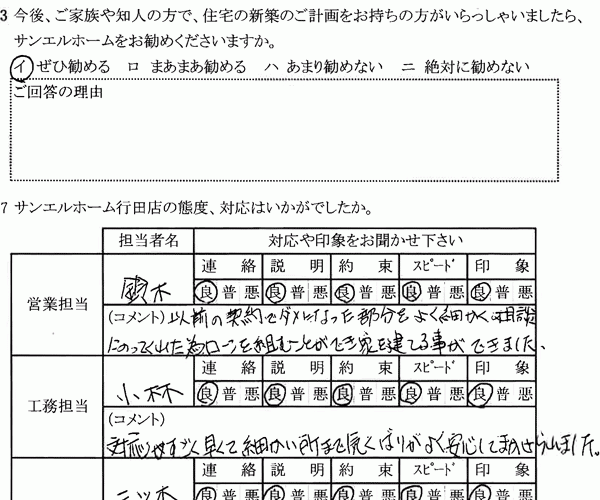 3 今後、ご家族や知人の方で、住宅の新築のご計画をお持ちの方がいらっしゃいましたら、
サンエルホームをお勧めくださいますか。
イ ぜひ勧める ロ まあまあ勧める ハ あまり勧めない ニ 絶対に勧めない
ご回答の理由
7 サンエルホーム行田店の態度、対応はいかがでしたか。
担当者名 対応や印象をお聞かせ下さい
連絡 説明 約束 スピード 印象
営業担当 鈴木 良 普 悪 良 普 悪 良 普 悪 良 普 悪 良 普 悪
(コメント) 以前の契約でダメになった部分をよく細かく相談
にのってくれた為ローンを組むことができ家を建てる事ができました。
連絡 説明 約束 スピード 印象
工務担当 小林 良 普 悪 良 普 悪 良 普 悪 良 普 悪 良 普 悪
(コメント)
対応がすごく早くて細かい所まで気くばりがよく安心してまかせられました。
連絡 説明 約束 スピード 印象
三ツ木 良 普 悪 良 普 悪 良 普 悪 良 普 悪 良 普 悪